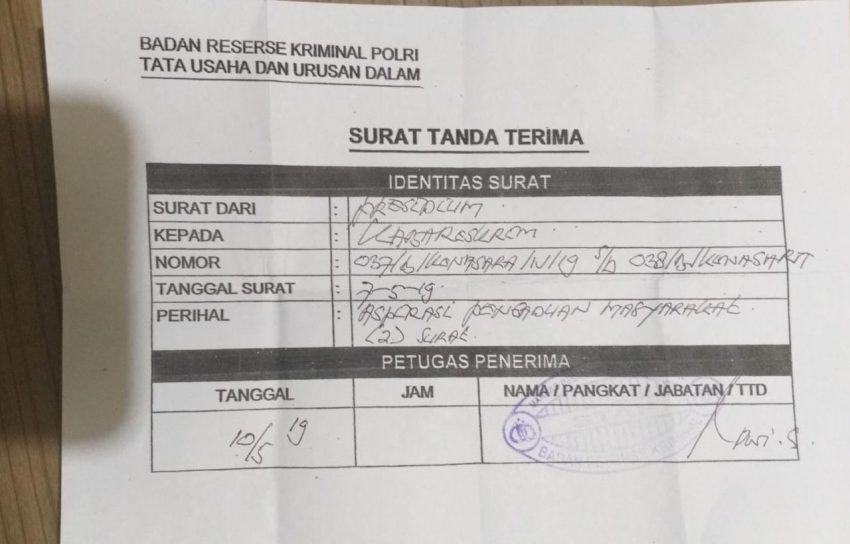 BADAN RESERSE KRIMINAL POLRI
TATA USAHA DAN URUSAN DALAM
SURAT TANDA TERIMA
IDENTITAS SURAT
SURAT DARI : PRESIDIUM
KEPADA : KABARESKRIM
NOMOR : 037/B/KONASARA/IV/19 S/D 038/B/KONASARA
TANGGAL SURAT : 7-5-19.
PERIHAL : ASPIRASI PENGADUAN MASYARAKAT
(2) SURAT.
PETUGAS PENERIMA
TANGGAL JAM NAMA / PANGKAT / JABATAN / TTD
10/5 19 Dwi. S.
BADAN RESERSE KRIMINAL